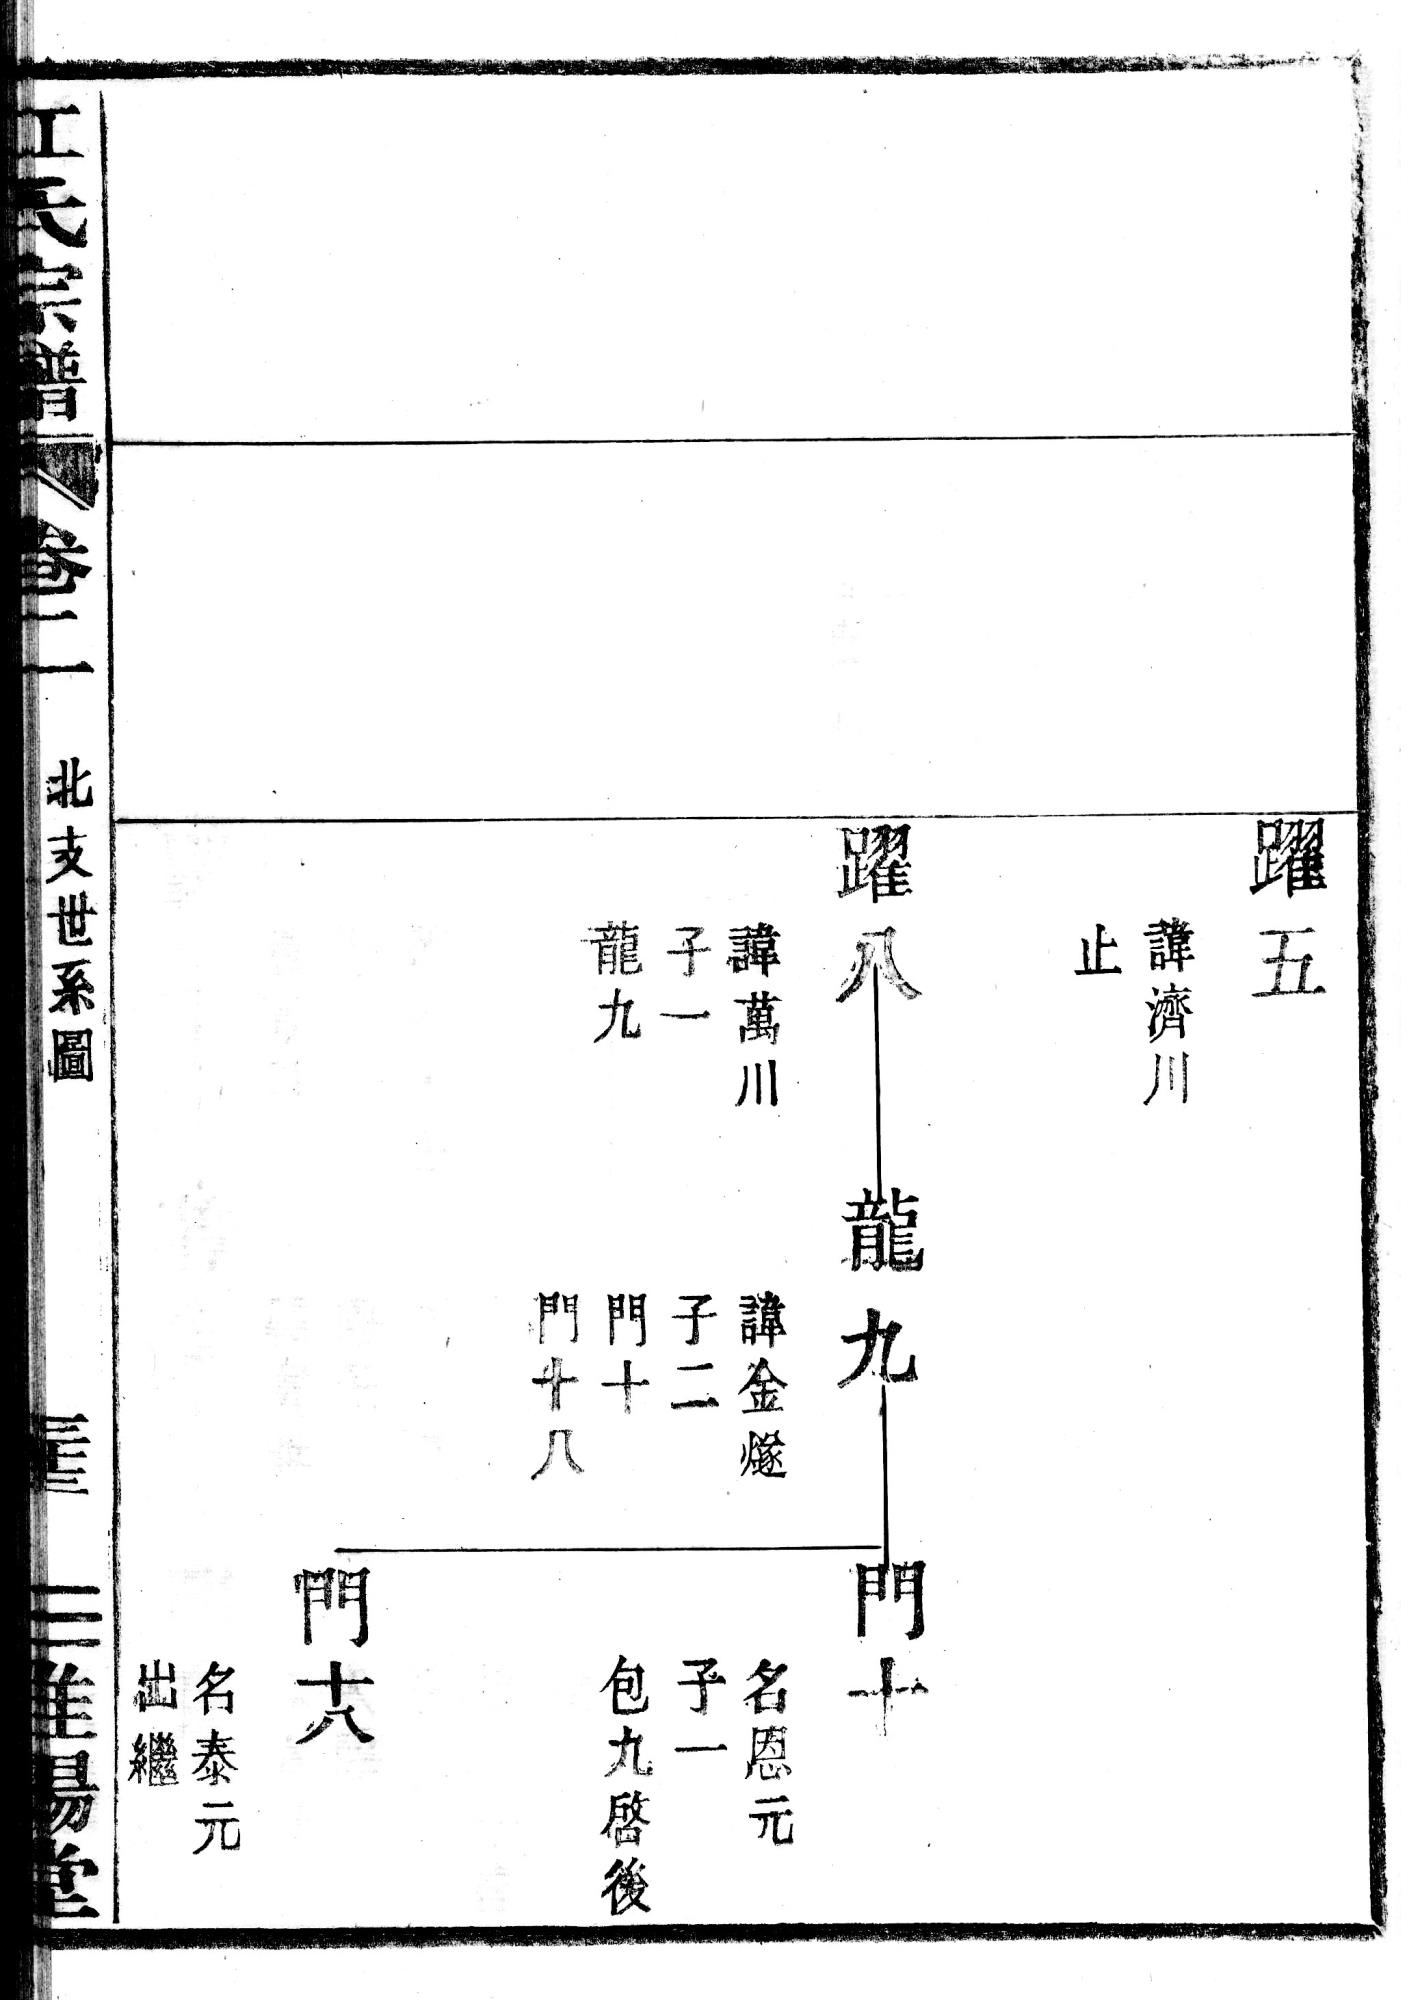 躍五
諱濟川
止
躍八
諱萬川
子一
龍九
龍九
諱金燧
子二
門十
門十八
門十
名恩元
子一
包九啓後
門十八
名泰元
出繼
江氏宗譜
卷二
北支世系圖
三 淮陽堂